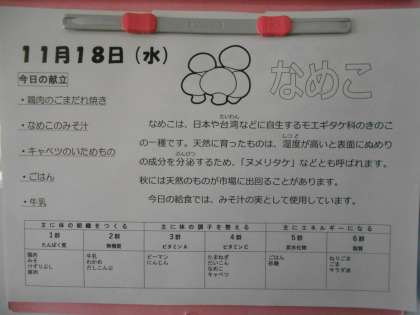 11月18日（水）
なめこ
今日の献立
・鶏肉のごまだれ焼き
・なめこのみそ汁
・キャベツのいためもの
・ごはん
・牛乳
たいわん
なめこは、日本や台湾などに自生するモエギタケ科のきのこ
しつど
の一種です。天然に育ったものは、湿度が高いと表面にぬめり
ぶんぴつ
の成分を分泌するため、「ヌメリタケ」などとも呼ばれます。
秋には天然のものが市場に出回ることがあります。
今日の給食では、みそ汁の実として使用しています。
主に体の組織をつくる 主に体の調子を整える 主にエネルギーになる
1群 2群 3群 4群 5群 6群
たんぱく質 無機質 ビタミンA ビタミンC 炭水化物 脂質
鶏肉 牛乳 ピーマン たまねぎ ごはん ねりごま
みそ わかめ にんじん だいこん 砂糖 ごま
けずりぶし だしこんぶ なめこ サラダ油
豚肉 キャベツ